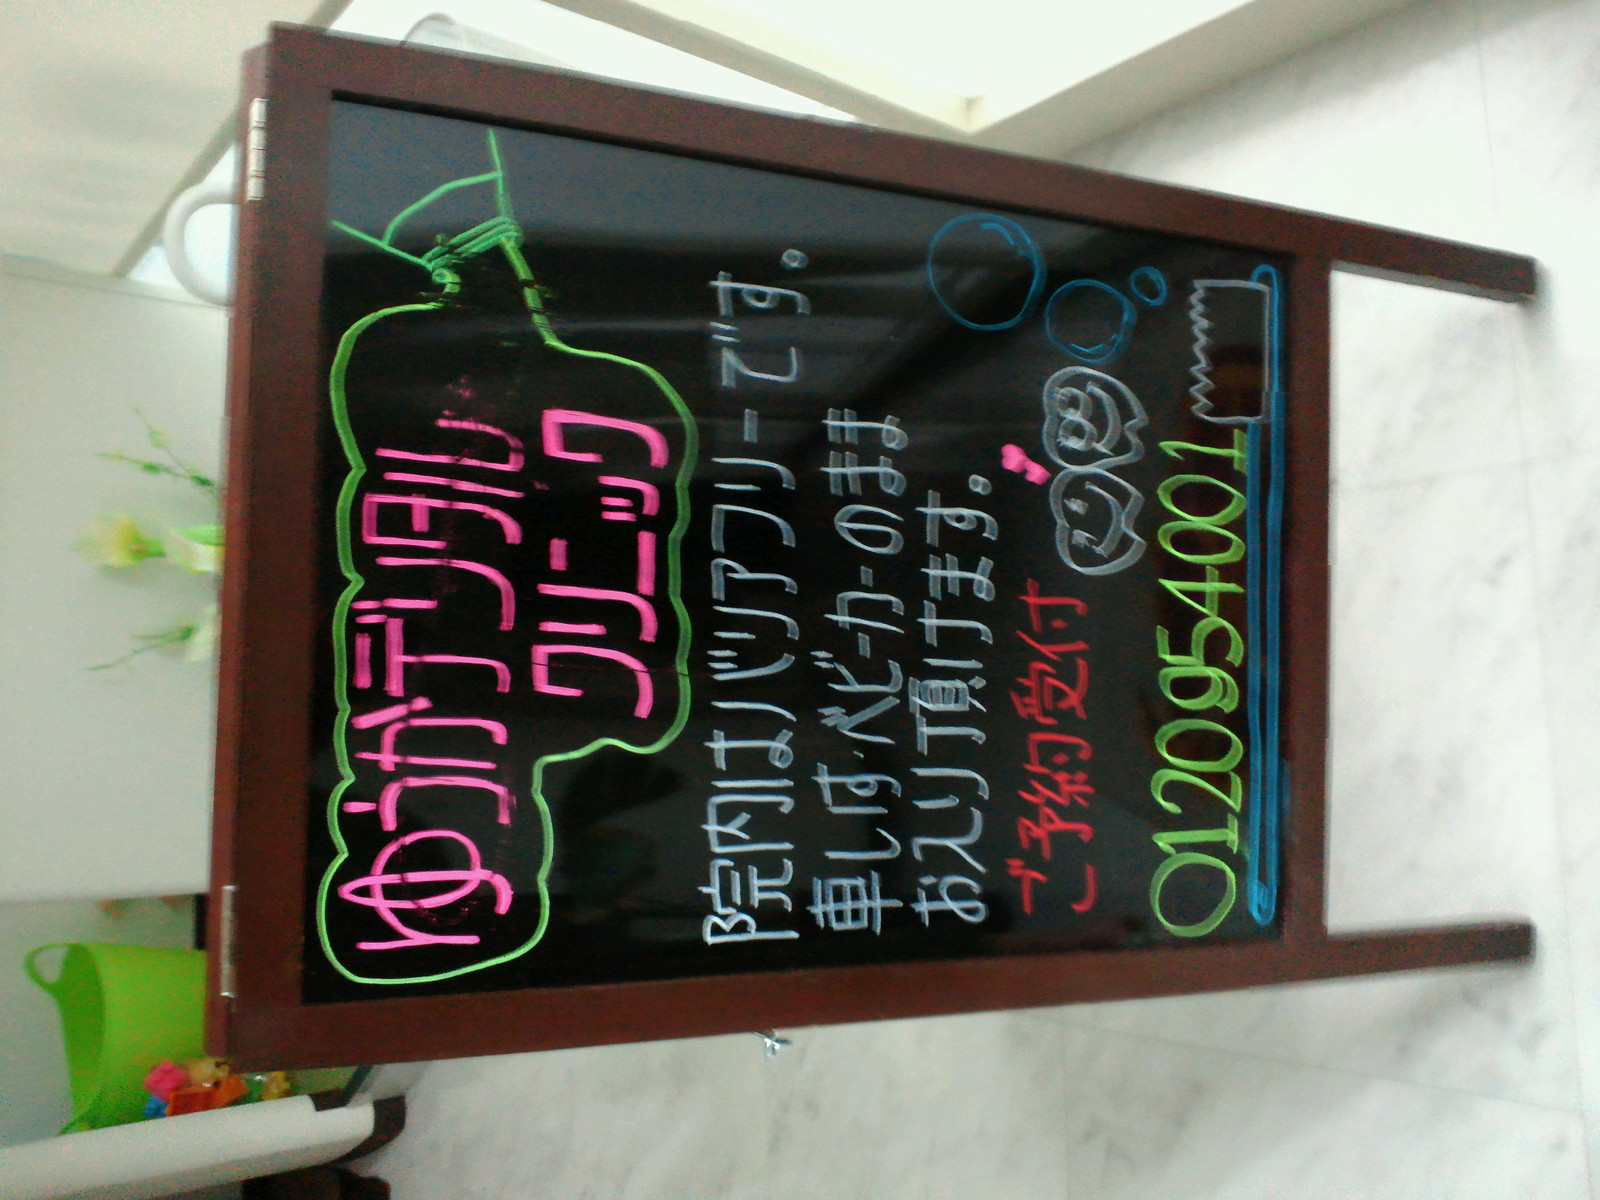 ゆうかデンタル
クリニック
院内はバリアフリーです。
車いす・ベビーカーのまま
お入り頂けます。
ご予約受付
0120954001